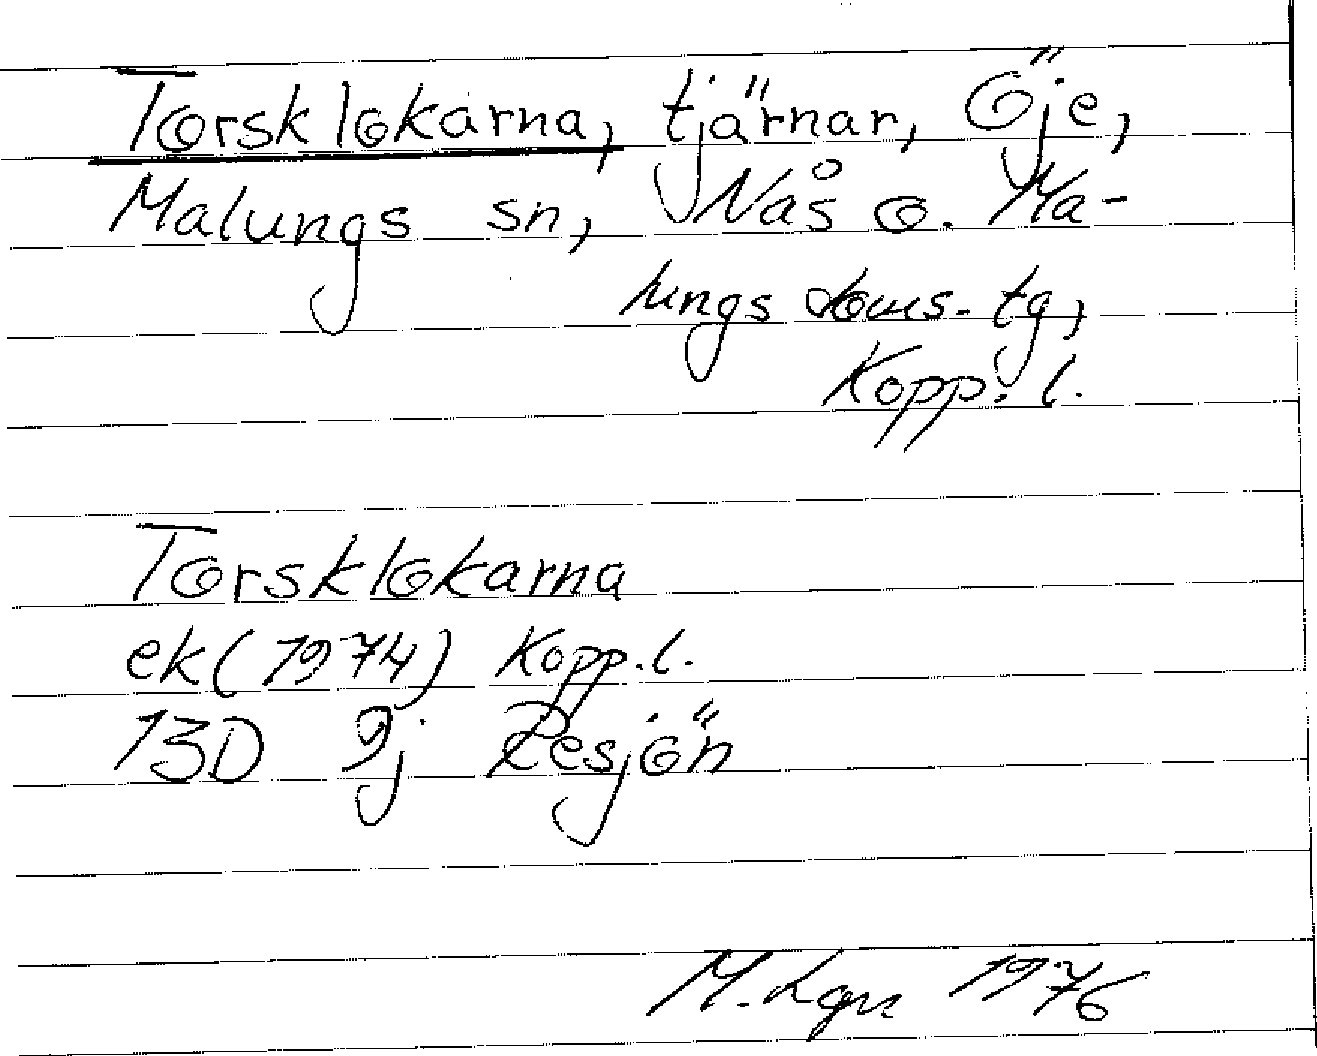 Torsklokarna, tjärnar, Öje,
Malungs sn, Nås o. Ma-
lungs doms. tg,
Kopp. l.
Torsklokarna
ek (1974) Kopp. l.
13D 9j Resjön
M. Lgn 1976